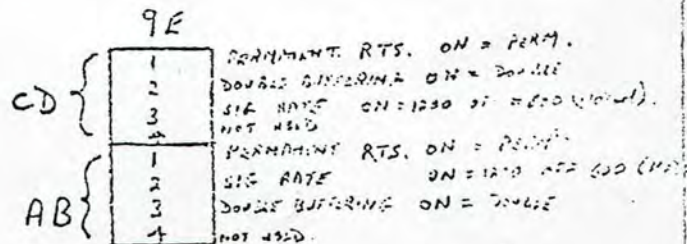 9E
CD { 1 PERMANENT RTS. ON = PERM.
2 DOUBLE BUFFERING ON = DOUBLE
3 SIG RATE ON = 1200 = 600
4 NOT USED
AB { 1 PERMANENT RTS. ON = PERM.
2 SIG RATE ON = 1200 OFF 600
3 DOUBLE BUFFERING ON = DOUBLE
4 NOT USED.